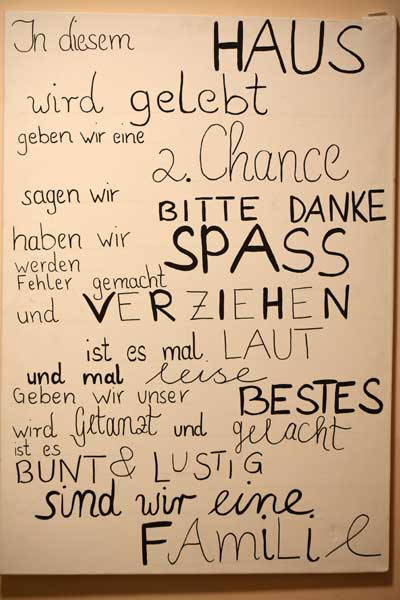 In diesem HAUS
wird gelebt
geben wir eine
2. Chance
sagen wir
BITTE DANKE
haben wir SPASS
werden
Fehler gemacht
und VERZIEHEN
ist es mal LAUT
und mal leise
Geben wir unser BESTES
wird Getanzt und gelacht
ist es
BUNT & LUSTIG
sind wir eine
FAMiLiE